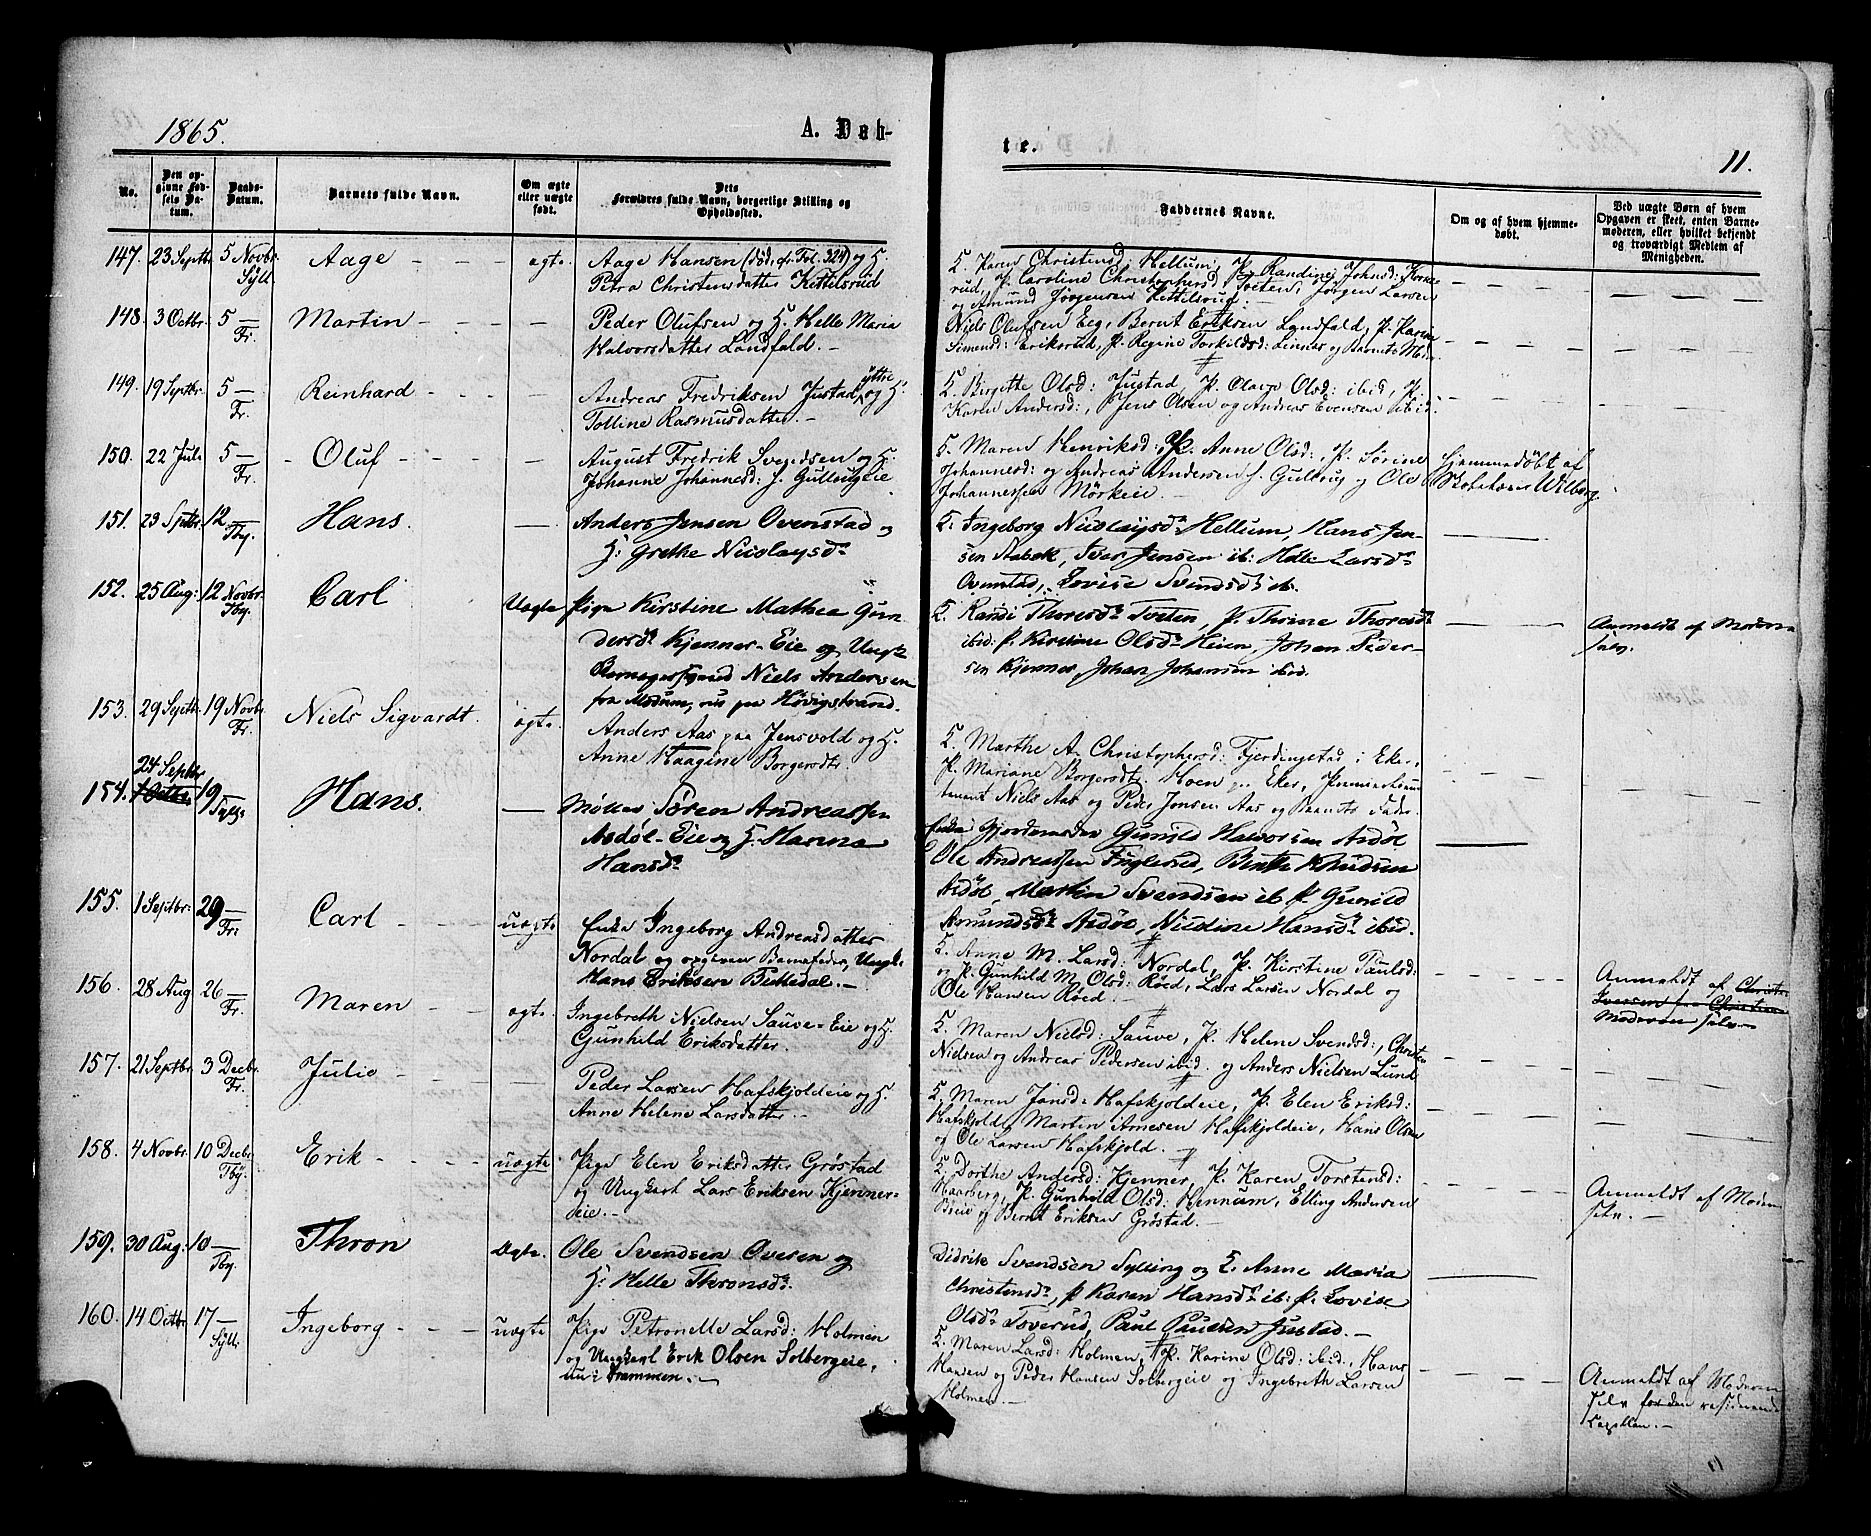 1865.
A. Døb-
te.
11.
No.
Den opgivne Fødsels Datum.
Daabs-Datum.
Barnets fulde Navn.
Om ægte eller uægte født.
Dets Forældres fulde Navn, borgerlige Stilling og Opholdssted.
Faddernes Navne.
Om og af hvem hjemmedøbt.
Ved uægte Børn af hvem Opgaven er skeet, enten Barnemoderen, eller hvilket bekjendt og troværdigt Medlem af Menigheden.
147. 23 Septbr. 5 Novbr. Syll. Aage ægte.
Aage Hansen (död, cfr. Fol. 324) og H.
Petra Christensdatter Kittilsrud
K. Karen Christensd: Hellum, P. Randine Johnsd: Korne
rud, P. Caroline Christophersd: Tveten, Jörgen Larsen
og Amund Jörgensen Kittilsrud. —
148. 3 Octbr. 5 — Fr. Martin —
Peder Olufsen og H. Helle Maria
Halvorsdatter Landfald. —
Niels Olufsen Eeg, Bernt Eriksen Landfald, P. Karen
Simensd: Eriksrud, P. Regine Torkildsd: Linnes og Barnets Mod.
149. 19 Septbr. 5 — Fr. Reinhard —
Andreas Fredriksen Justad, yttre og H.
Tolline Rasmusdatter. —
K. Birgitte Olsd: Justad, P. Olava Olsd: ibid, P.
Karen Andersd:, Jens Olsen og Andreas Evensen ibid.
150. 22 Juli 5 — Fr. Oluf —
August Fredrik Svendsen og H.
Johanne Johannesd: f. Gullaugeie
K. Maren Henriksd:, P. Anne Olsd:, P. Sörine
Johannesd: og Andreas Andersen f. Gullaug og Ole
Johannessen Mörkeie. —
Hjemmedöbt af
Skoletaerer Wilberg.
151. 23 Sptbr. 12 — Tby. Hans. —
Anders Jensen Ovenstad og
H: Grethe Nicolaysdr
K. Ingeborg Nicolaysdr Hellum, Hans Jen-
sen Aabek, Ivar Jensen ib: Helle Larsdr
Ovenstad, Lovise Svendsdr ib.
152. 25 Aug: 12 Novbr. Tby. Carl Uægte
Pige Kirstine Mathea Gun
dersdr Kjenner-Eie og Ungk.
Niels Andersen
fra Modum, nu paa Hövigstrand.
K. Randi Thoresdr Tveten, P. Thrine Thoresdr
ibid: P. Kirstine Olsdr Heien, Johan Peder-
sen Kjenner, Johan Johansen ibid.
Anmeldt af Moderen
selv.
153. 29 Septbr. 19 Novbr. Fr. Niels Sigvardt. ægte.
Anders Aas paa Jensvold og H.
Anne Haagine Borgersdtr
K. Marthe A. Christophersd: Fjerdingstad i Eker,
P. Mariane Borgersdtr. Hoen paa Eker,
Niels Aas og Peder Jonsen Aas og Barnets Fader.
24 Septbr
154. 19 — Sylls. Hans. —
Möller Sören Andreassen
Asdöl-Eie og H. Marina
Hansdr
Enke Gunild Halvorsen Asdöl
Ole Andreassen Fuglerud, Bente Knudsen
Asdöl, Martin Svendsen ib P. Gunild
Amundsdr Asdöl, Nicoline Hansdr ibid.
155. 1 Septbr: 29 — Fr: Carl uægte
Enke Ingeborg Andreasdatter
Nordal og opgiven Barnefader, Ungk.
Hans Eriksen Bettedal. —
K. Anne M. Larsd: Nordal, P. Kirstine Paulsd:
og P. Gunhild M. Olsd: Röed, Lars Larsen Nordal og
Ole Hansen Röed. —
Anmeldt af Christen
Iversen fra Christiania
Moderen selv.
156. 28 Aug. 26 — Fr. Maren ægte.
Ingebreth Nielsen Sauve-Eie og H.
Gunhild Eriksdatter.
K. Maren Nielsd: Sauve, P. Helene Svendsd:, Christen
Nielsen og Andreas Pedersen ibid. og Anders Nielsen Lund
157. 21 Septbr. 3 Decbr. Fr. Julie —
Peder Larsen Hafskjoldeie og H.
Anne Helene Larsdatter. —
K. Maren Jansd: Hafskjoldeie, P. Elen Eriksd:
Hafskjold, Martin Arnesen Hafskjoldeie, Hans Olsen
og Ole Larsen Hafskjold. —
158. 4 Novbr. 10 Decbr. Tby. Erik uægte
Pige Elen Eriksdatter Gröstad
og Ungkarl Lars Eriksen Kjenner-
eie. —
K. Dorthe Andersd: Kjenner, P. Karen Torstensd:
Haarberg, P. Gunhild Olsd: Hennum, Elling Andersen
Bøeie og Bernt Eriksen Gröstad. —
Anmeldt af Moderen
selv. —
159. 30 Aug: 10 — Tby. Thron Ægte.
Ole Svendsen Overen og
H: Helle Thronsdr.
Didrik Svendsen Sylling og K. Anne Maria
Christensdr, P Karen Hansdr ib: P. Lovise
Olsdr Toverud, Paul Paulsen Justad. —
160. 14 Octbr 17 — Syll. Ingeborg uægte
Pige Petronelle Larsd: Holmen
og Ungkarl Erik Olsen Solbergeie,
nu i Drammen. —
K. Maren Larsd: Holmen, P. Karine Olsd: ibid., Hans
Hansen og Peder Hansen Solbergeie og Ingebreth Larsen
Holmen. —
Anmeldt af Moderen
selv for den residerende
Capellan. —